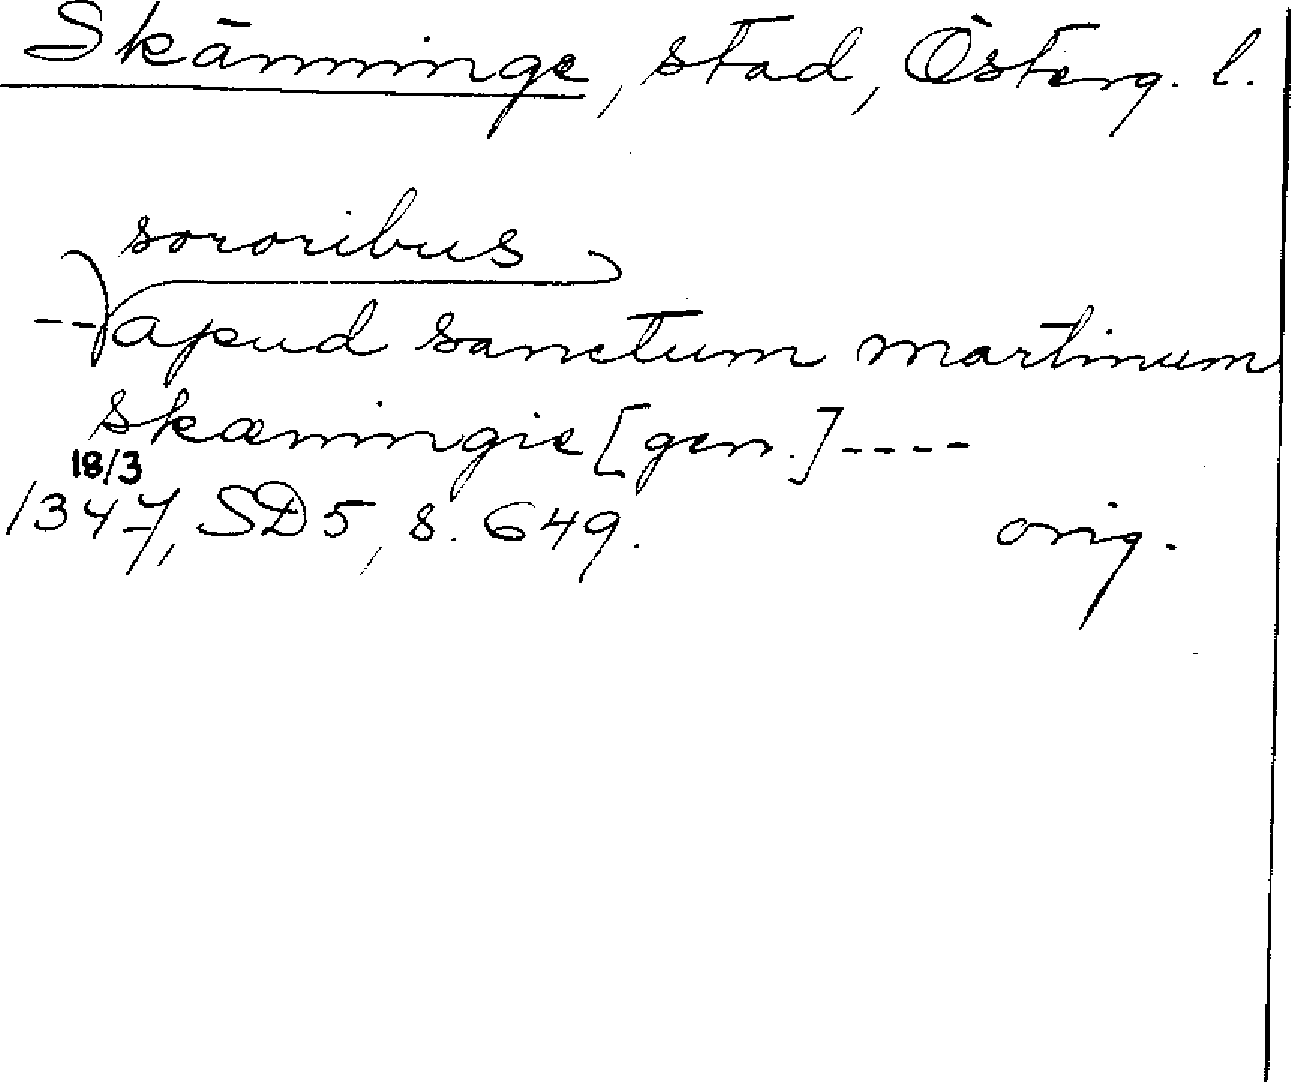 Skänninge, stad, Österg. l.
sororibus
-- apud sanctum martinum
skæningie [gen.] ----
18/3
1347, SD 5, s. 649. orig.